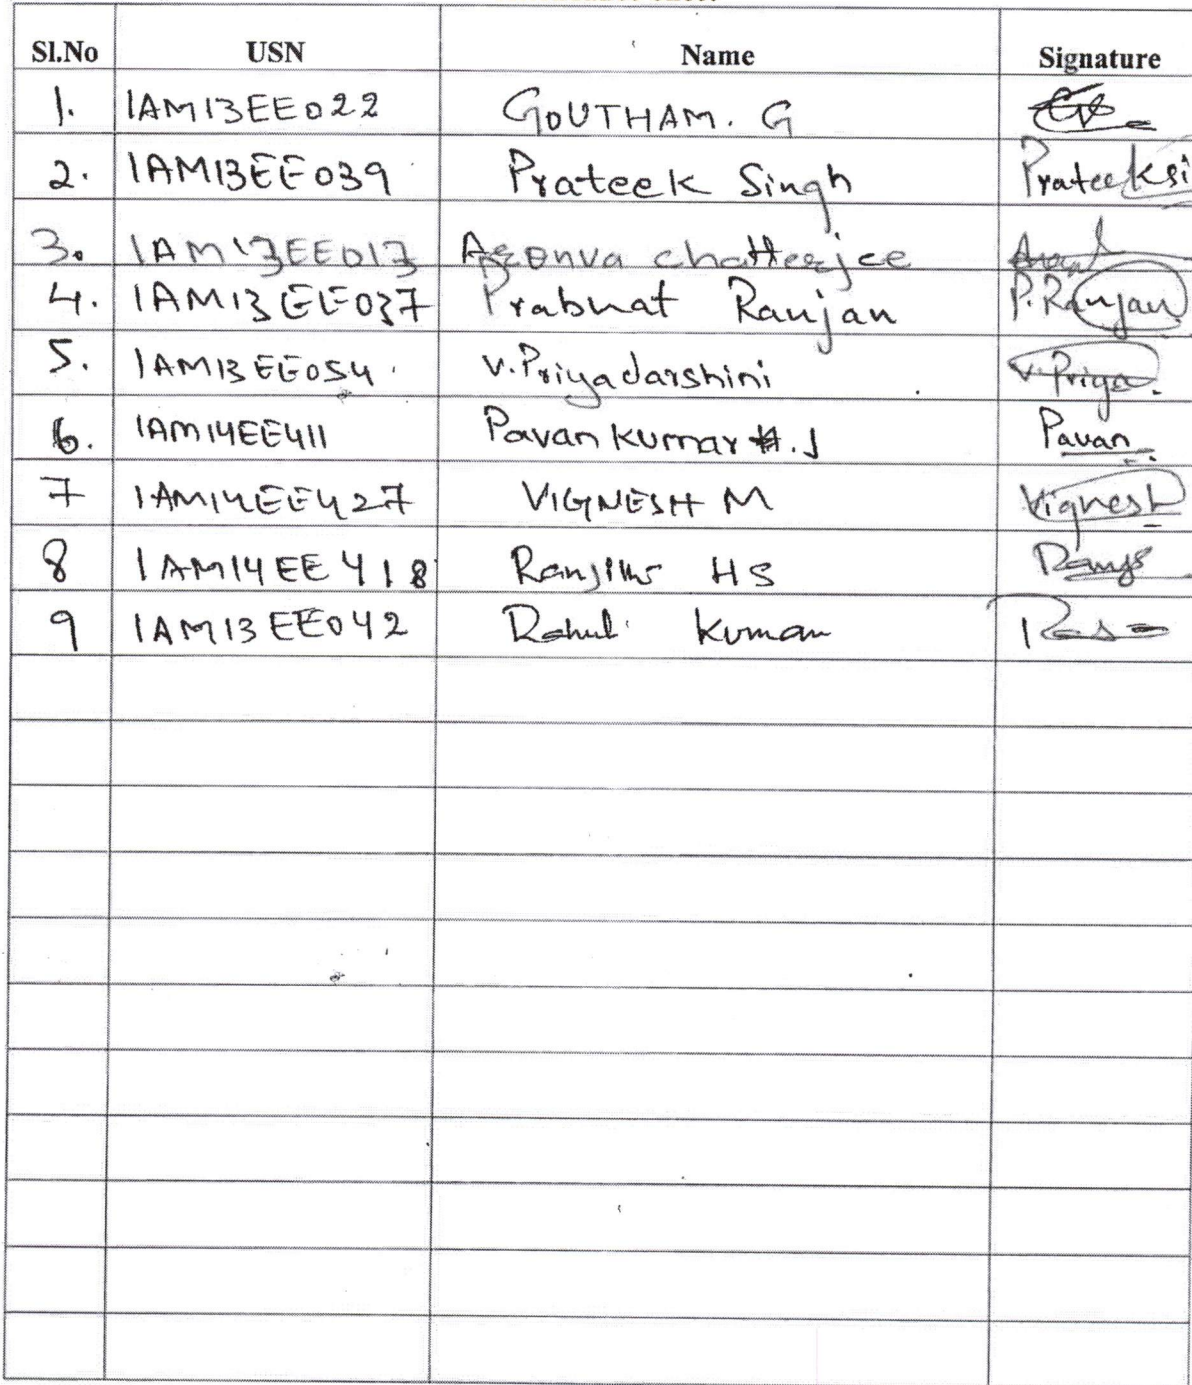 Sl.No USN Name Signature
1. 1AM13EE022 GOUTHAM. G
2. 1AM13EE039 Prateek Singh Prateeksi
3. 1AM13EE013 chatterjee
4. 1AM13EE037 Prabhat Ranjan P. Ranjan
5. 1AM13EE054 V.Priyadarshini V.Priya.
6. 1AM14EE411 Pavan kumar .J Pavan
7 1AM14EE427 VIGNESH M Vignesh
8 1AM14EE418 HS
9 1AM13EE042 Rahul Kumar